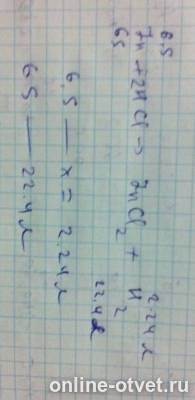 6,5 2.24л
Zn + 2HCl → ZnCl2 + H2
65 22.4л
6,5 — x = 2.24л
65 — 22.4л
online-otvet.ru